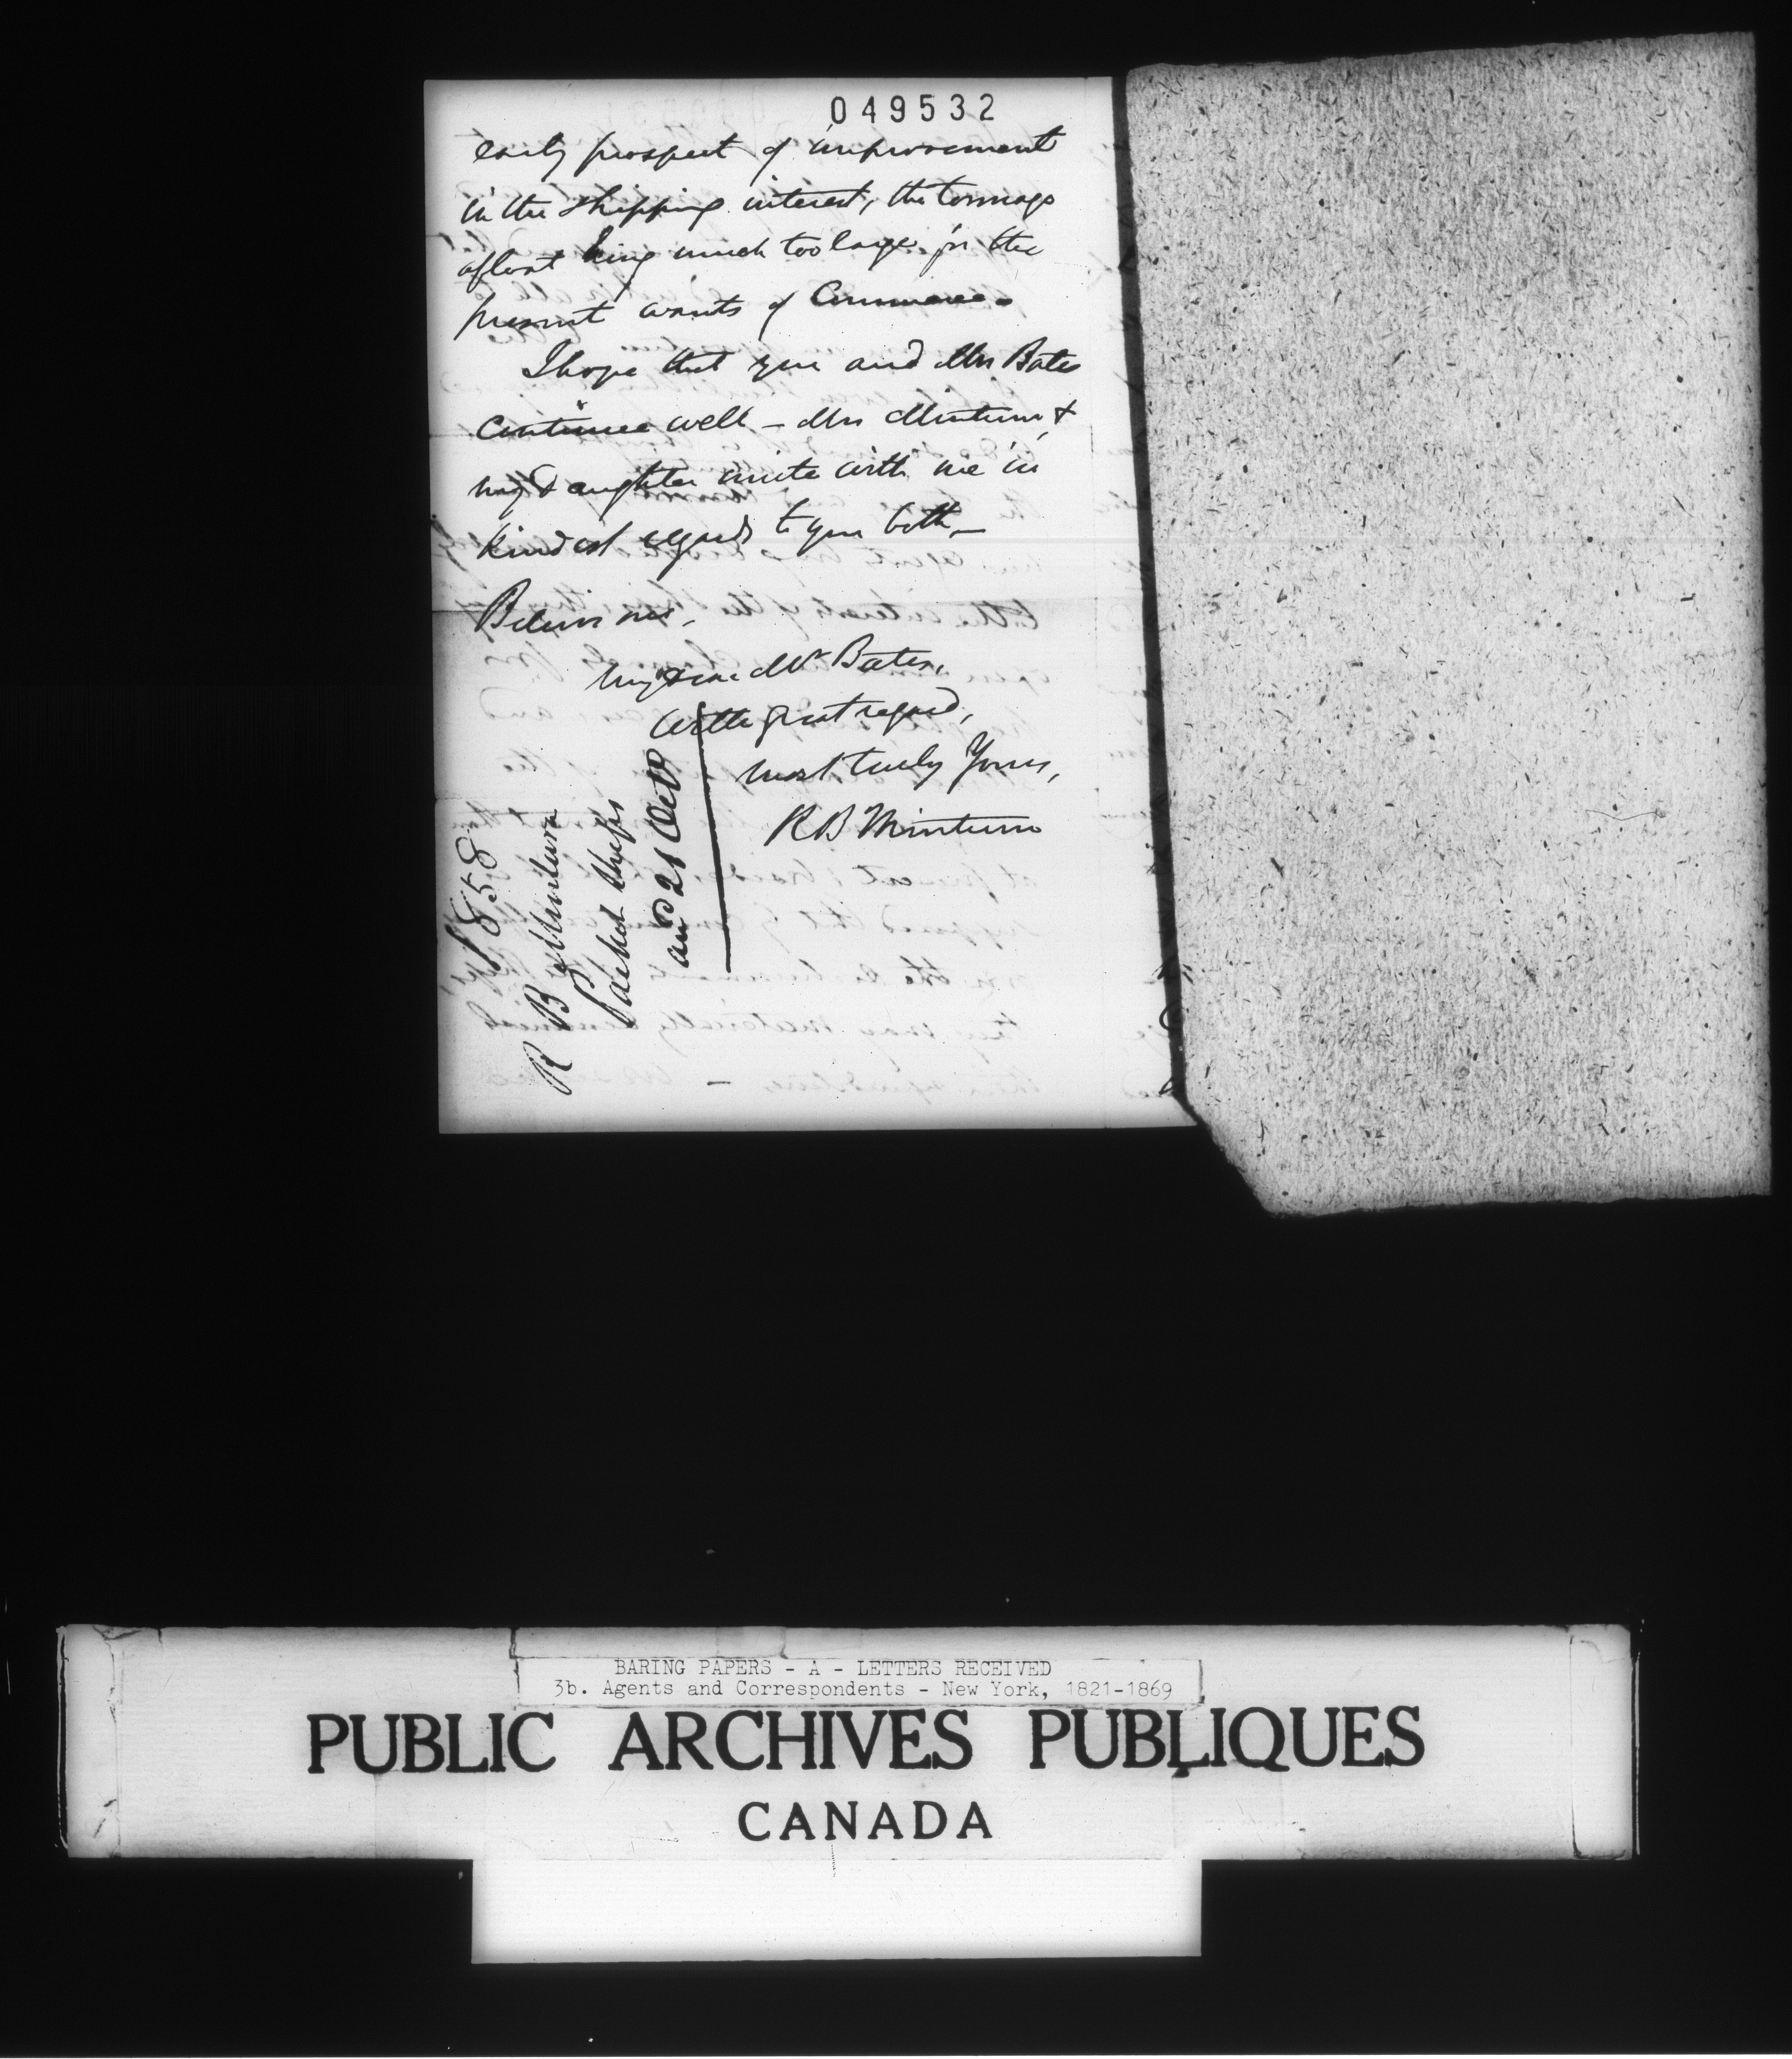 049532
early prospect of improvement
in the shipping interest, the tonnage
afloat being much too large for the
present wants of Commerce.
I hope that you and Mrs Bates
continue well – Mrs Minturn &
my daughter unite with me in
kindest regards to you both –
Believe me,
My dear Mr Bates,
with great regard,
most truly Yours,
R B Minturn
1858
R B Minturn
Packet Ships
and 21 Oct
BARING PAPERS - A - LETTERS RECEIVED
3b. Agents and Correspondents - New York, 1821-1869
PUBLIC ARCHIVES PUBLIQUES
CANADA